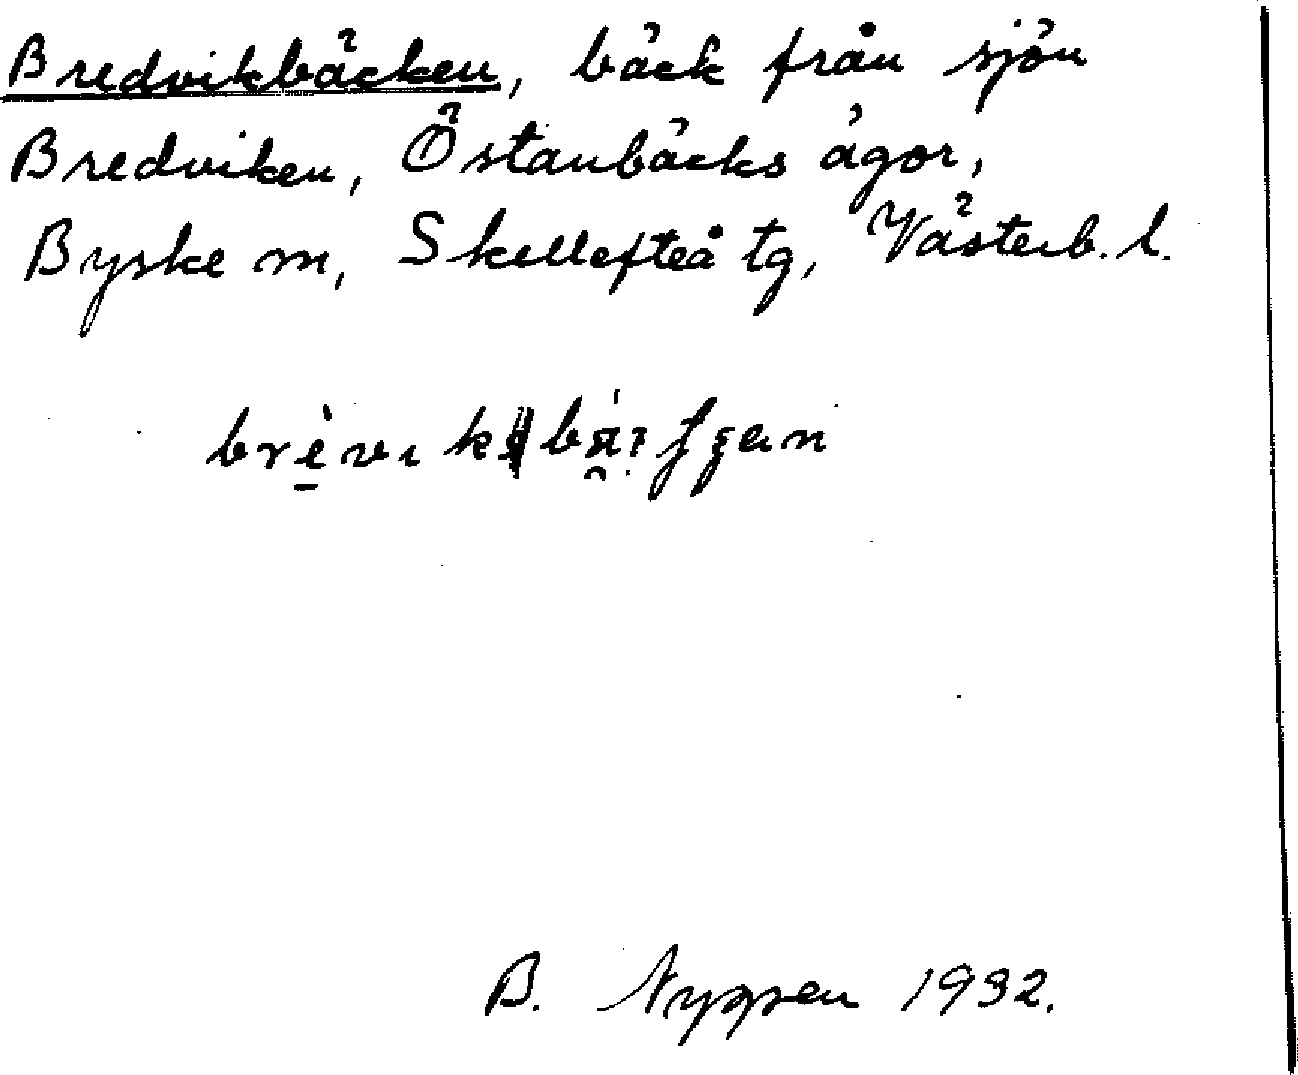 Bredvikbäcken, bäck från sjön
Bredviken, Östanbäcks ägor,
Byske sn, Skellefteå tg, Västerb. l.
B. Nygren 1932.